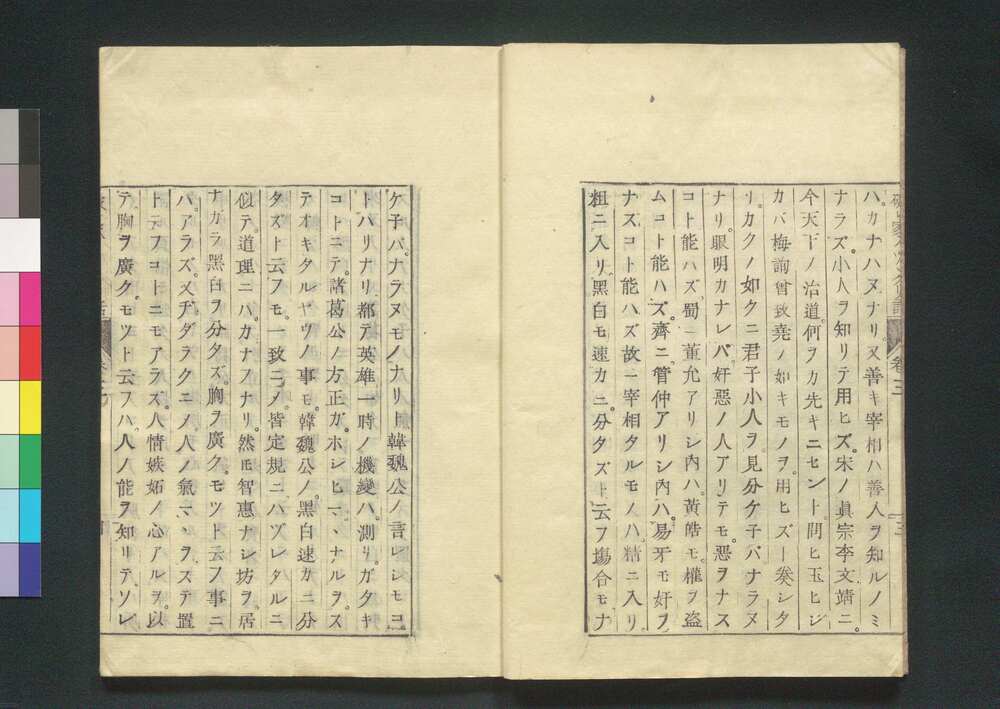 ハ。カナハヌナリ又善キ宰相ハ善人ヲ知ルノミ
ナラズ。小人ヲ知リテ用ヒズ。宋ノ眞宗李文靖ニ。
今天下ノ治道。何ヲカ先キニセント問ヒ玉ヒシ
カバ梅詢曾致堯ノ如キモノヲ。用ヒズト奏シタ
リ。カクノ如クニ君子小人ヲ。見分ケ子バナラヌ
ナリ。眼明カナレバ。奸惡ノ人アリテモ。惡ヲナス
コト能ハズ。蜀ニ董允アリシ内ハ。黃皓モ。權ヲ盜
ムコト能ハズ。齊ニ。管仲アリシ内ハ。易牙モ奸ヲ
ナスコト能ハズ故ニ宰相タルモノハ。精ニ入リ
粗ニ入リ。黑白モ速カニ。分タズト云フ塲合モナ
ケ子バ。ナラヌモノナリト韓魏公ノ言レシモコ。
トハリナリ都テ英雄一時ノ機變ハ。測リガタキ
コトニテ。諸葛公ノ方正ガ。ホシヒマヽナルヲス
テオキタルヤウノ事モ。韓魏公ノ。黑白速カニ分
タズト云フモ。一致ニメ。皆定規ニ。ハヅレタルニ
似テ。道理ニハ。カナフナリ。然モ智惠ナシ坊ヲ。居
ナガラ黑白ヲ分タズ。胸ヲ廣ク。モツト云フ事ニ
ハ。アラズ。又チダラクニメ人ノ氣マヽヲ。ステ置
トテフコトニモアラズ。人情嫉妬ノ心アルヲ。以
テ。胸ヲ廣ク。モツト云フハ。人ノ能ヲ知リテ。ソレ
卷二